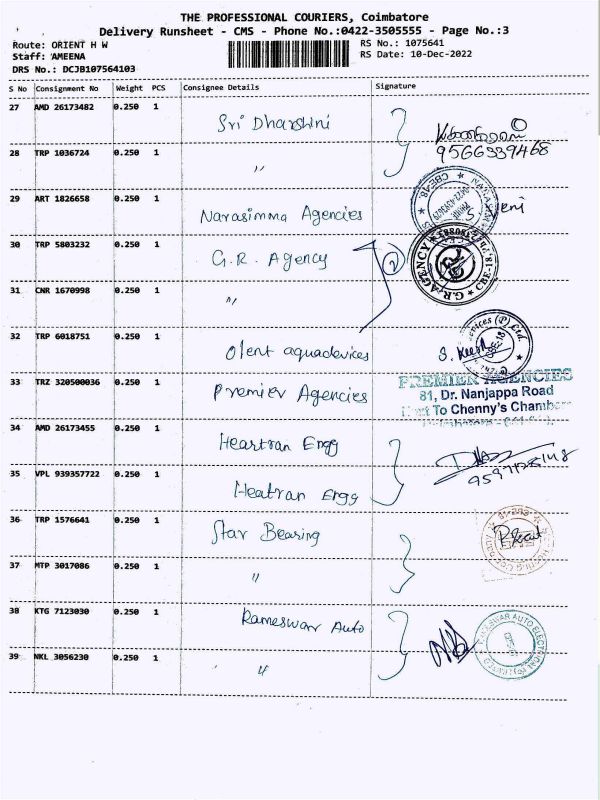 THE PROFESSIONAL COURIERS, Coimbatore
Delivery Runsheet - CMS - Phone No.:0422-3505555 - Page No.:3
Route: ORIENT H W
RS No.: 1075641
Staff: AMEENA
RS Date: 10-Dec-2022
DRS No.: DCJB107564103
S No Consignment No Weight PCS Consignee Details Signature
27 AMD 26173482 0.250 1 Sri Dharshni
9566339468
28 TRP 1036724 0.250 1 "
29 ART 1826658 0.250 1 Narasimma Agencies
CBE-18
S. Veni
30 TRP 5803232 0.250 1 G.R. Agency 2
G.R. AGENCY
31 CNR 1670998 0.250 1 "
32 TRP 6018751 0.250 1 Olent aquadevices
(P) Ltd.
33 TRZ 320500036 0.250 1 Premier Agencies
PREMIER AGENCIES
81, Dr. Nanjappa Road
To Chenny's Chamber
34 AMD 26173455 0.250 1 Heartran Engg
35 VPL 939357722 0.250 1 Heatran Engg
36 TRP 1576641 0.250 1 Star Bearing
37 MTP 3017086 0.250 1 "
38 KTG 7123030 0.250 1 Rameswar Auto
RAMESWAR AUTO ELECTRICAL
39 NKL 3056230 0.250 1 "